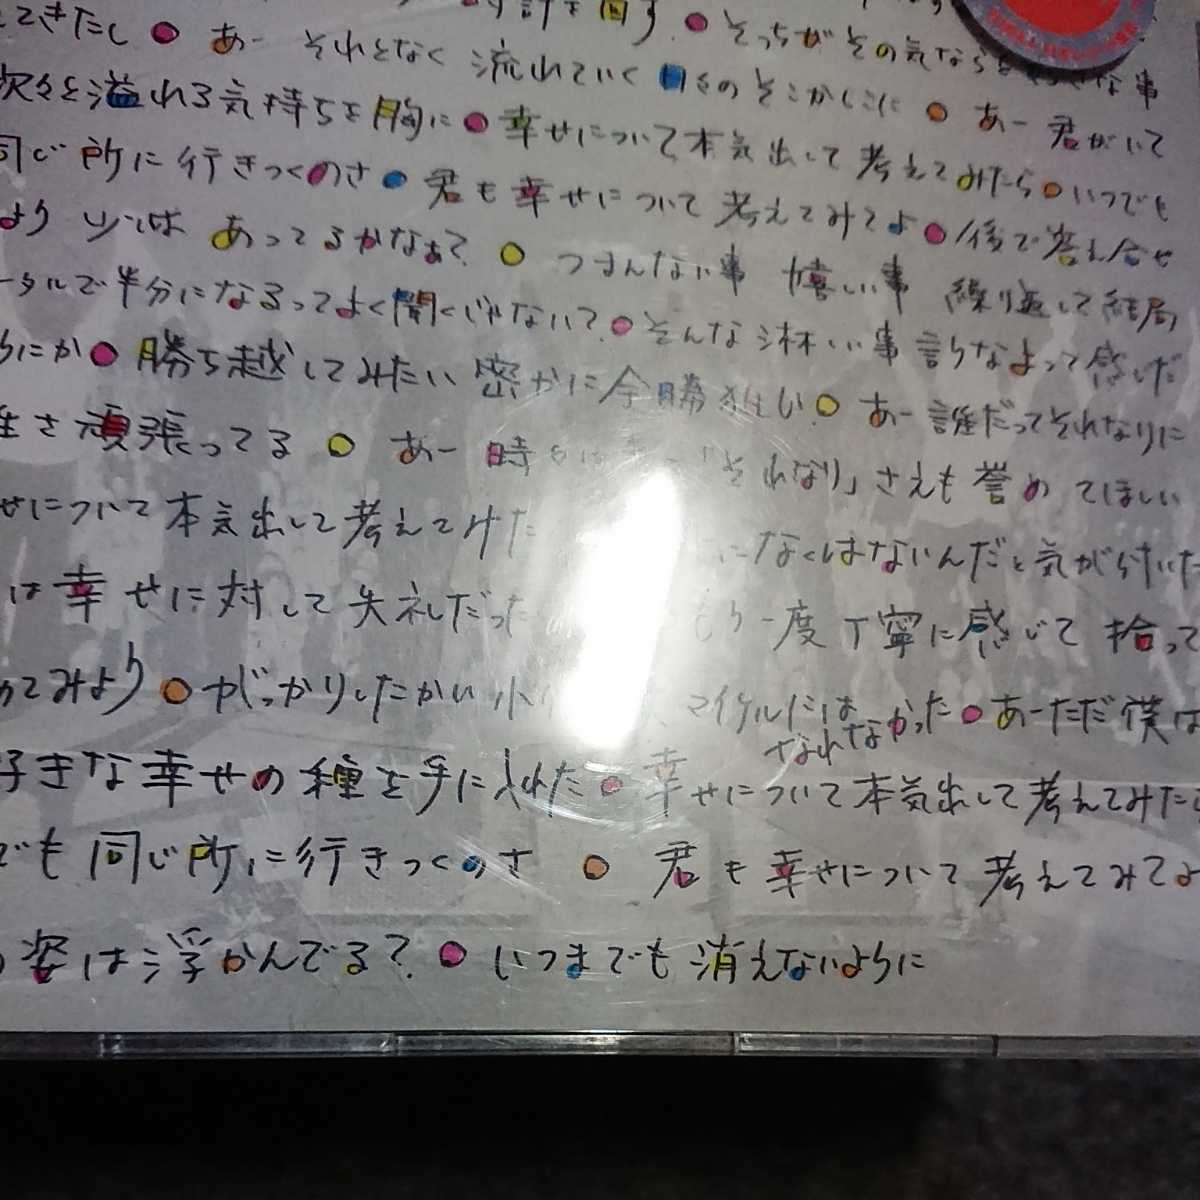 てきたし ● あー それとなく 流れていく 日々の そこかしこに ● あー 君がいて
そっちがその気なら
な事
次々と溢れる気持ちを胸に ● 幸せについて本気出して考えてみたら ● いつでも
同じ所に行きつくのさ ● 君も幸せについて考えてみてよ ● 後で答え合せ
より 少しは あってるかなぁ? ● つまんない事 嬉しい事 繰り返して結局
ータルで半分になるってよく聞くじゃない? ● そんな淋しい事言うなよって感じた
うにか ● 勝ち越してみたい 密かに全勝狙い ● あー 誰だってそれなりに
生き頑張ってる ● あー 時 「それなり」さえも誉めてほしい
せについて本気出して考えてみた になくはないんだと気が付いた
は幸せに対して失礼だった もう一度丁寧に感じて拾って
めてみよう ● がっかりしたかい 小 マイケルには なれなかった ● あーただ僕は
好きな幸せの種を手に入れた ● 幸せについて本気出して考えてみたら
でも同じ所に行きつくのさ ● 君も幸せについて考えてみてよ
姿は浮かんでる? ● いつまでも消えないように